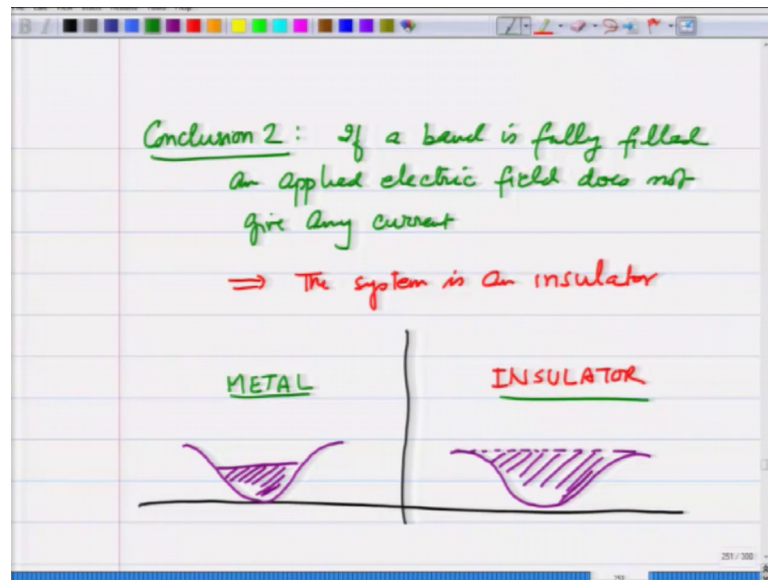 Conclusion 2 : If a band is fully filled
an applied electric field does not
give any current
⇒ The system is an insulator
METAL
INSULATOR
251 / 300